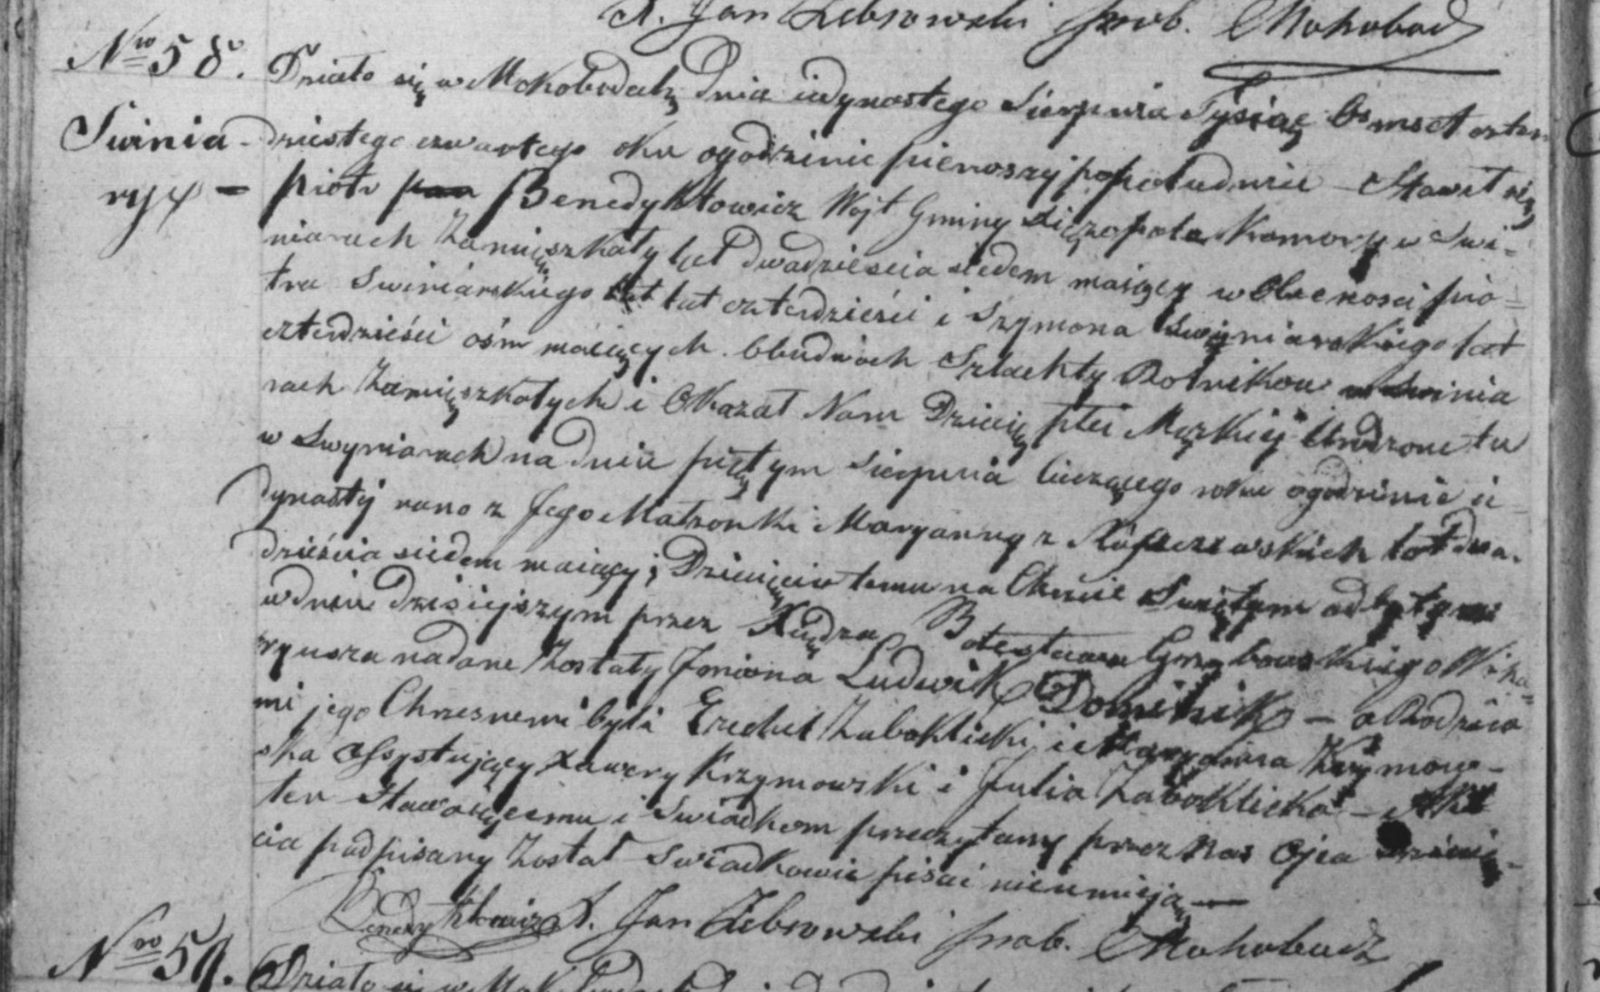 X. Jan Zebrowski prob. Mokobodz
Nro 58. Działo się w Mokobodach Dnia iedynastego Sierpnia Tysiąc Osmset czter
Swinia - dziestego czwartego roku ogodzinie pierwszy popołudniu - Stawił się
ryx - Piotr Benedyktowicz Wojt Gminy Xiężopola Komory w Swi-
niarach Zamięszkały lat dwadziescia siedem maiący w Obecnosci Pio-
tra Swiniarskiego lat czterdzieści i Szymona Swyniarskiego lat
czterdzieści ośm maiących obudwoch Szlachty Rolnikow w Swinia
rach Zamięszkałych i Okazał Nam Dziecię płci Męzkiej Urodzone tu
w Swyniarach na dniu piętym Sierpnia bieżącego roku ogodzinie ie-
dynasty rano z Jego Małzonki Maryanny z lat dwa-
dzieścia siedem maiący; Dziecięciu temu na Chrzcie Swiętym odbytym
w dniu dzisiejszym przez Xiędza Bolesława Grzybowskiego Wika-
ryusza nadane Zostały Jmiona Ludwik Dominik - a Rodzica
mi jego Chrzesnemi byli Ezechiel Zaboklicki i Maryanna Krzymow-
ska Assystujący Xawery Krzymowski i Julia Zaboklicka - Akt
ten Stawaiącemu i Swiadkom przeczytany przez Nas Ojca Dziecię-
cia podpisany Został Swiadkowie pisać nieumieją -
Benedyktowicz X. Jan Zebrowski prob. Mokobodz
Nro 59. Działo się w Mokobodach